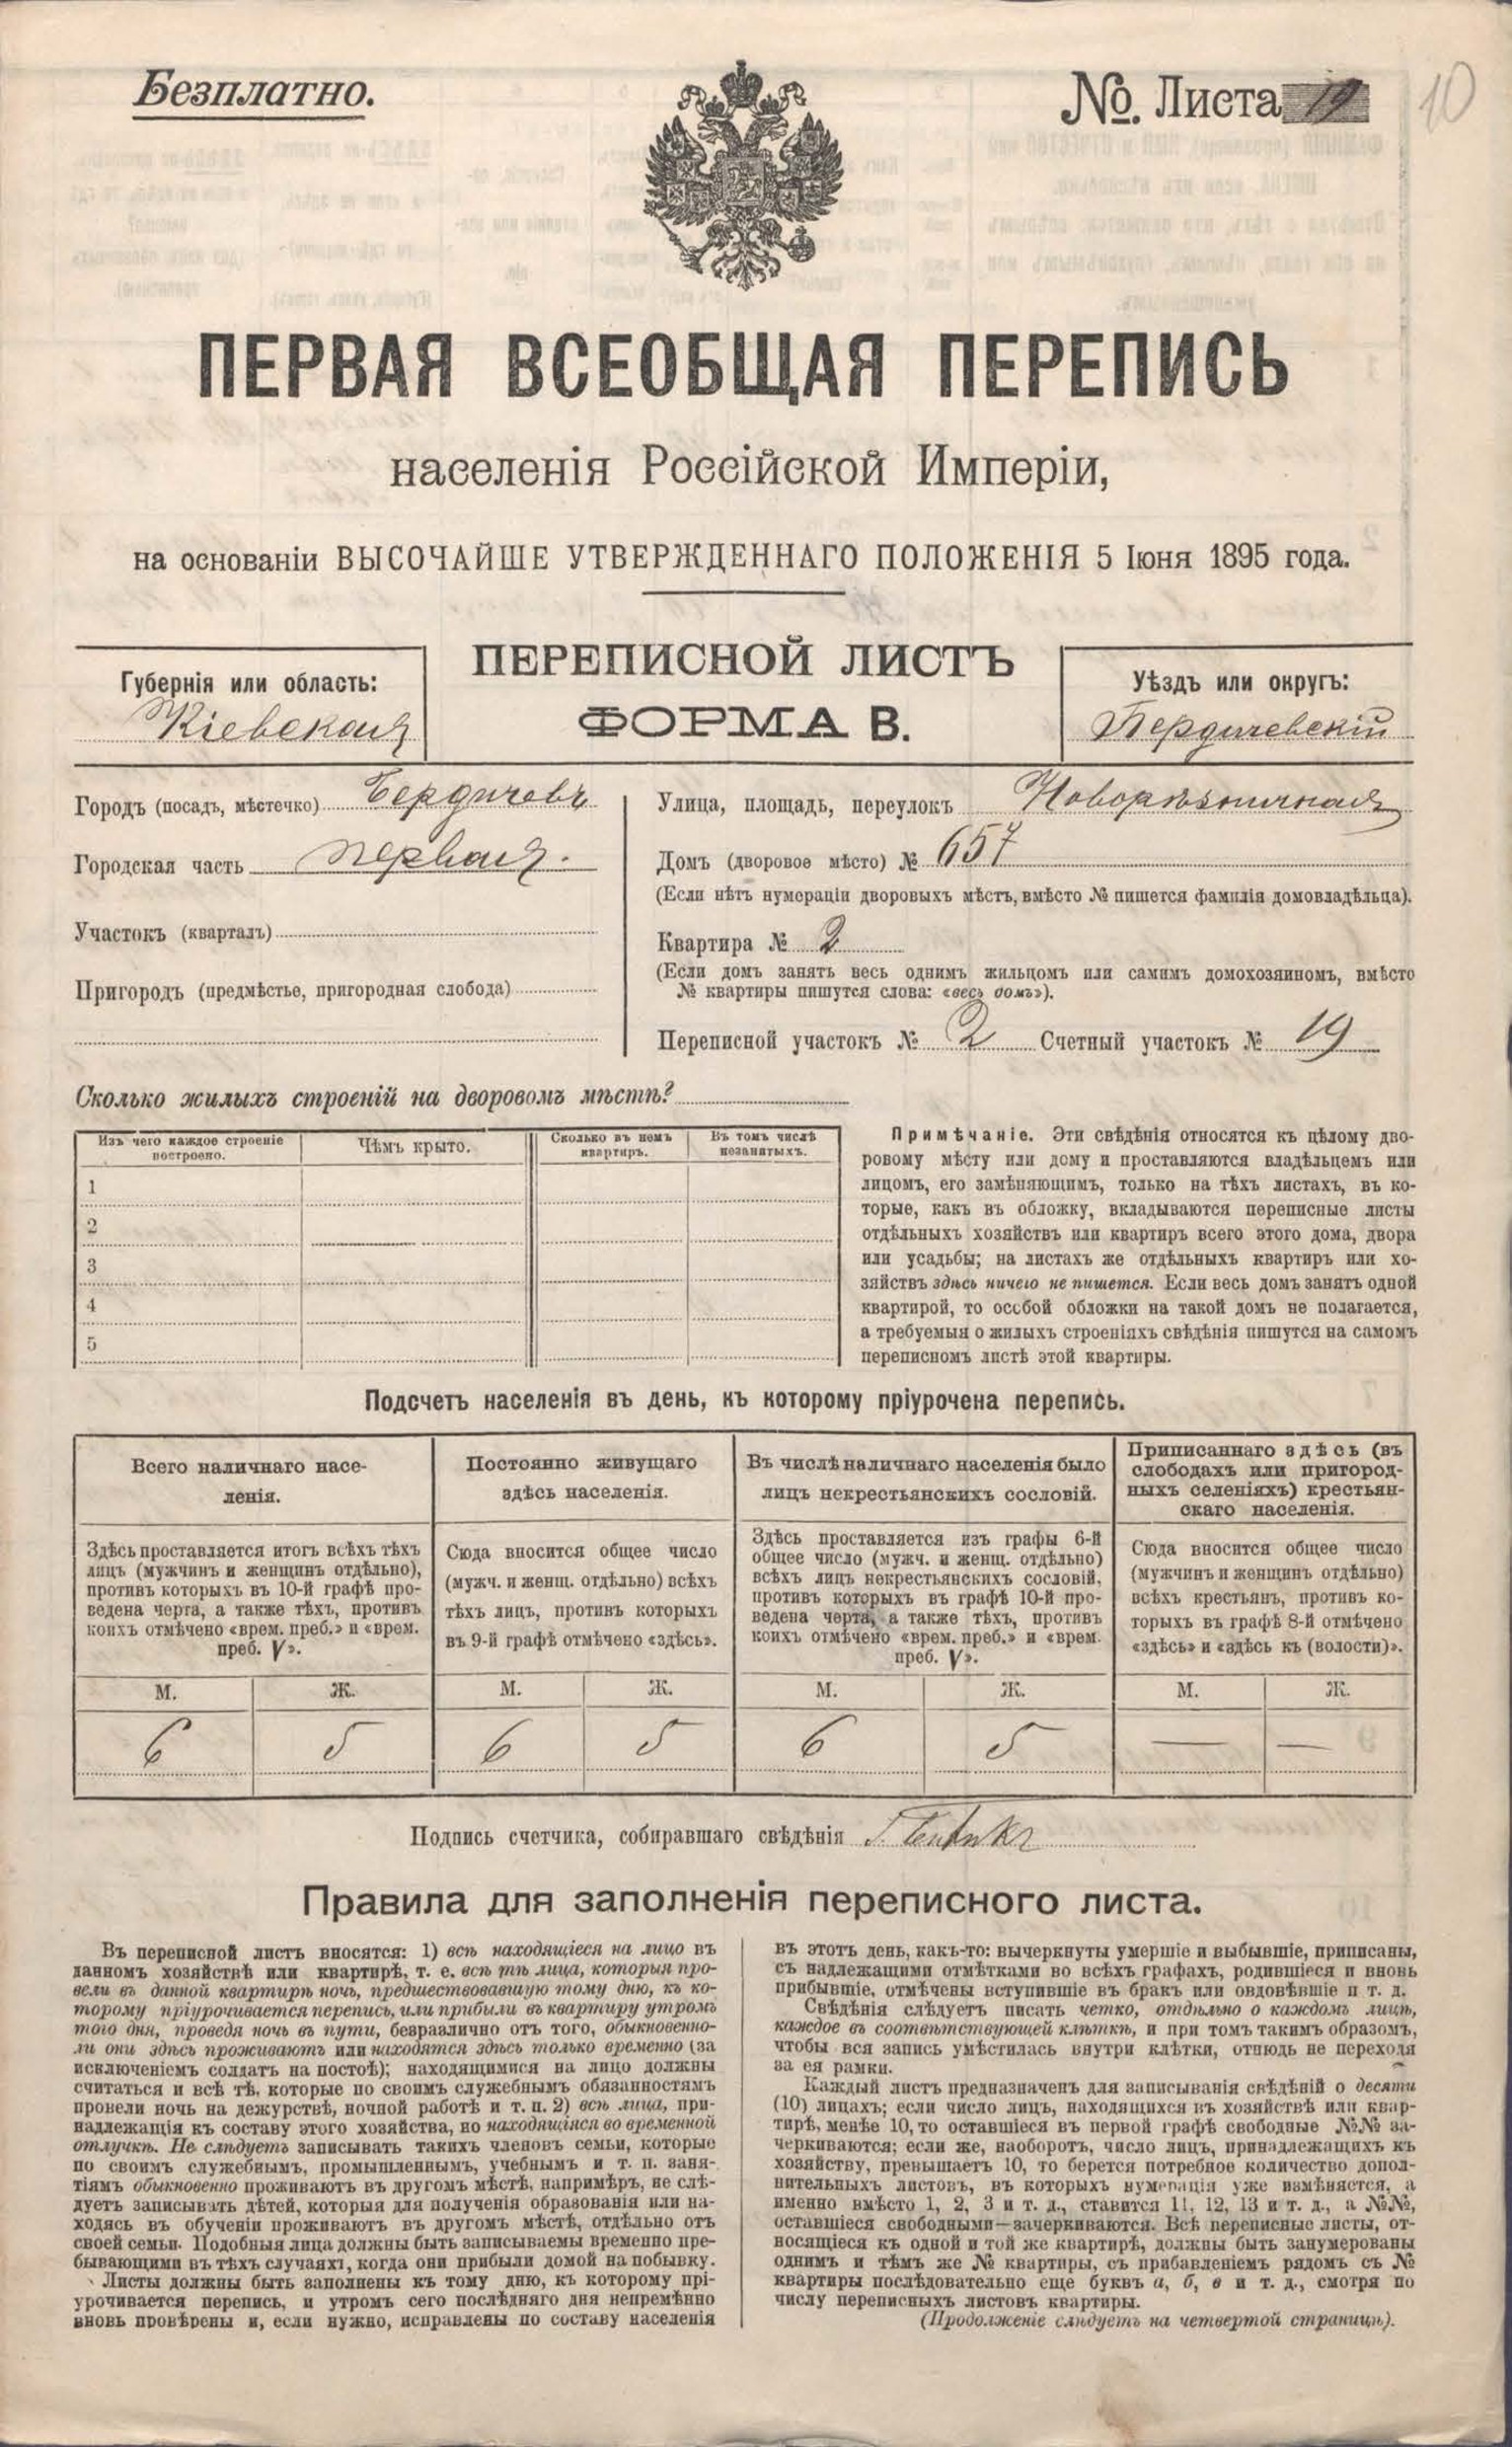 Безплатно.
№. Листа 19
10
ПЕРВАЯ ВСЕОБЩАЯ ПЕРЕПИСЬ
населенія Россійской Имперіи,
на основаніи ВЫСОЧАЙШЕ УТВЕРЖДЕННАГО ПОЛОЖЕНІЯ 5 Іюня 1895 года.
ПЕРЕПИСНОЙ ЛИСТЪ
ФОРМА В.
Губернія или область:
Кіевская
Уѣздъ или округъ:
Бердичевскій
Городъ (посадъ, мѣстечко) Бердичевъ
Городская часть первая.
Участокъ (кварталъ)
Пригородъ (предмѣстье, пригородная слобода)
Улица, площадь, переулокъ Новорѣзничная
Домъ (дворовое мѣсто) № 657
(Если нѣтъ нумераціи дворовыхъ мѣстъ, вмѣсто № пишется фамилія домовладѣльца).
Квартира № 2
(Если домъ занятъ весь однимъ жильцомъ или самимъ домохозяиномъ, вмѣсто
№ квартиры пишутся слова: «весь домъ»).
Переписной участокъ № 2 Счетный участокъ № 19
Сколько жилыхъ строеній на дворовомъ мѣстѣ?
Изъ чего каждое строеніе
построено.
Чѣмъ крыто.
Сколько въ немъ
квартиръ.
Въ томъ числѣ
незанятыхъ.
1
2
3
4
5
Примѣчаніе. Эти свѣдѣнія относятся къ цѣлому дво-
ровому мѣсту или дому и проставляются владѣльцемъ или
лицомъ, его замѣняющимъ, только на тѣхъ листахъ, въ ко-
торые, какъ въ обложку, вкладываются переписные листы
отдѣльныхъ хозяйствъ или квартиръ всего этого дома, двора
или усадьбы; на листахъ же отдѣльныхъ квартиръ или хо-
зяйствъ здѣсь ничего не пишется. Если весь домъ занятъ одной
квартирой, то особой обложки на такой домъ не полагается,
а требуемыя о жилыхъ строеніяхъ свѣдѣнія пишутся на самомъ
переписномъ листѣ этой квартиры.
Подсчетъ населенія въ день, къ которому пріурочена перепись.
Всего наличнаго насе-
ленія.
Постоянно живущаго
здѣсь населенія.
Въ числѣ наличнаго населенія было
лицъ некрестьянскихъ сословій.
Приписаннаго здѣсь (въ
слободахъ или пригород-
ныхъ селеніяхъ) крестьян-
скаго населенія.
Здѣсь проставляется итогъ всѣхъ тѣхъ
лицъ (мужчинъ и женщинъ отдѣльно),
противъ которыхъ въ 10-й графѣ про-
ведена черта, а также тѣхъ, противъ
коихъ отмѣчено «врем. преб.» и «врем.
преб. V».
Сюда вносится общее число
(мужч. и женщ. отдѣльно) всѣхъ
тѣхъ лицъ, противъ которыхъ
въ 9-й графѣ отмѣчено «здѣсь».
Здѣсь проставляется изъ графы 6-й
общее число (мужч. и женщ. отдѣльно)
всѣхъ лицъ некрестьянскихъ сословій,
противъ которыхъ въ графѣ 10-й про-
ведена черта, а также тѣхъ, противъ
коихъ отмѣчено «врем. преб.» и «врем.
преб. V».
Сюда вносится общее число
(мужчинъ и женщинъ отдѣльно)
всѣхъ крестьянъ, противъ ко-
торыхъ въ графѣ 8-й отмѣчено
«здѣсь» и «здѣсь къ (волости)».
М. Ж. М. Ж. М. Ж. М. Ж.
6 5 6 5 6 5 — —
Подпись счетчика, собиравшаго свѣдѣнія
Правила для заполненія переписного листа.
Въ переписной листъ вносятся: 1) всѣ находящіеся на лицо въ
данномъ хозяйствѣ или квартирѣ, т. е. всѣ тѣ лица, которыя про-
вели въ данной квартирѣ ночь, предшествовавшую тому дню, къ ко-
торому пріурочивается перепись, или прибыли въ квартиру утромъ
того дня, проведя ночь въ пути, безразлично отъ того, обыкновенно-
ли они здѣсь проживаютъ или находятся здѣсь только временно (за
исключеніемъ солдатъ на постоѣ); находящимися на лицо должны
считаться и всѣ тѣ, которые по своимъ служебнымъ обязанностямъ
провели ночь на дежурствѣ, ночной работѣ и т. п. 2) всѣ лица, при-
надлежащія къ составу этого хозяйства, но находящіяся во временной
отлучкѣ. Не слѣдуетъ записывать такихъ членовъ семьи, которые
по своимъ служебнымъ, промышленнымъ, учебнымъ и т. п. заня-
тіямъ обыкновенно проживаютъ въ другомъ мѣстѣ, напримѣръ, не слѣ-
дуетъ записывать дѣтей, которыя для полученія образованія или на-
ходясь въ обученіи проживаютъ въ другомъ мѣстѣ, отдѣльно отъ
своей семьи. Подобныя лица должны быть записываемы временно пре-
бывающими въ тѣхъ случаяхъ, когда они прибыли домой на побывку.
Листы должны быть заполнены къ тому дню, къ которому прі-
урочивается перепись, и утромъ сего послѣдняго дня непремѣнно
вновь провѣрены и, если нужно, исправлены по составу населенія
въ этотъ день, какъ-то: вычеркнуты умершіе и выбывшіе, приписаны,
съ надлежащими отмѣтками во всѣхъ графахъ, родившіеся и вновь
прибывшіе, отмѣчены вступившіе въ бракъ или овдовѣвшіе и т. д.
Свѣдѣнія слѣдуетъ писать четко, отдѣльно о каждомъ лицѣ,
каждое въ соотвѣтствующей клѣткѣ, и при томъ такимъ образомъ,
чтобы вся запись умѣстилась внутри клѣтки, отнюдь не переходя
за ея рамки.
Каждый листъ предназначенъ для записыванія свѣдѣній о десяти
(10) лицахъ; если число лицъ, находящихся въ хозяйствѣ или квар-
тирѣ, менѣе 10, то оставшіеся въ первой графѣ свободные №№ за-
черкиваются; если же, наоборотъ, число лицъ, принадлежащихъ къ
хозяйству, превышаетъ 10, то берется потребное количество допол-
нительныхъ листовъ, въ которыхъ нумерація уже измѣняется, а
именно вмѣсто 1, 2, 3 и т. д., ставится 11, 12, 13 и т. д., а №№,
оставшіеся свободными—зачеркиваются. Всѣ переписные листы, от-
носящіеся къ одной и той же квартирѣ, должны быть занумерованы
однимъ и тѣмъ же № квартиры, съ прибавленіемъ рядомъ съ №
квартиры послѣдовательно еще буквъ а, б, в и т. д., смотря по
числу переписныхъ листовъ квартиры.
(Продолженіе слѣдуетъ на четвертой страницѣ).